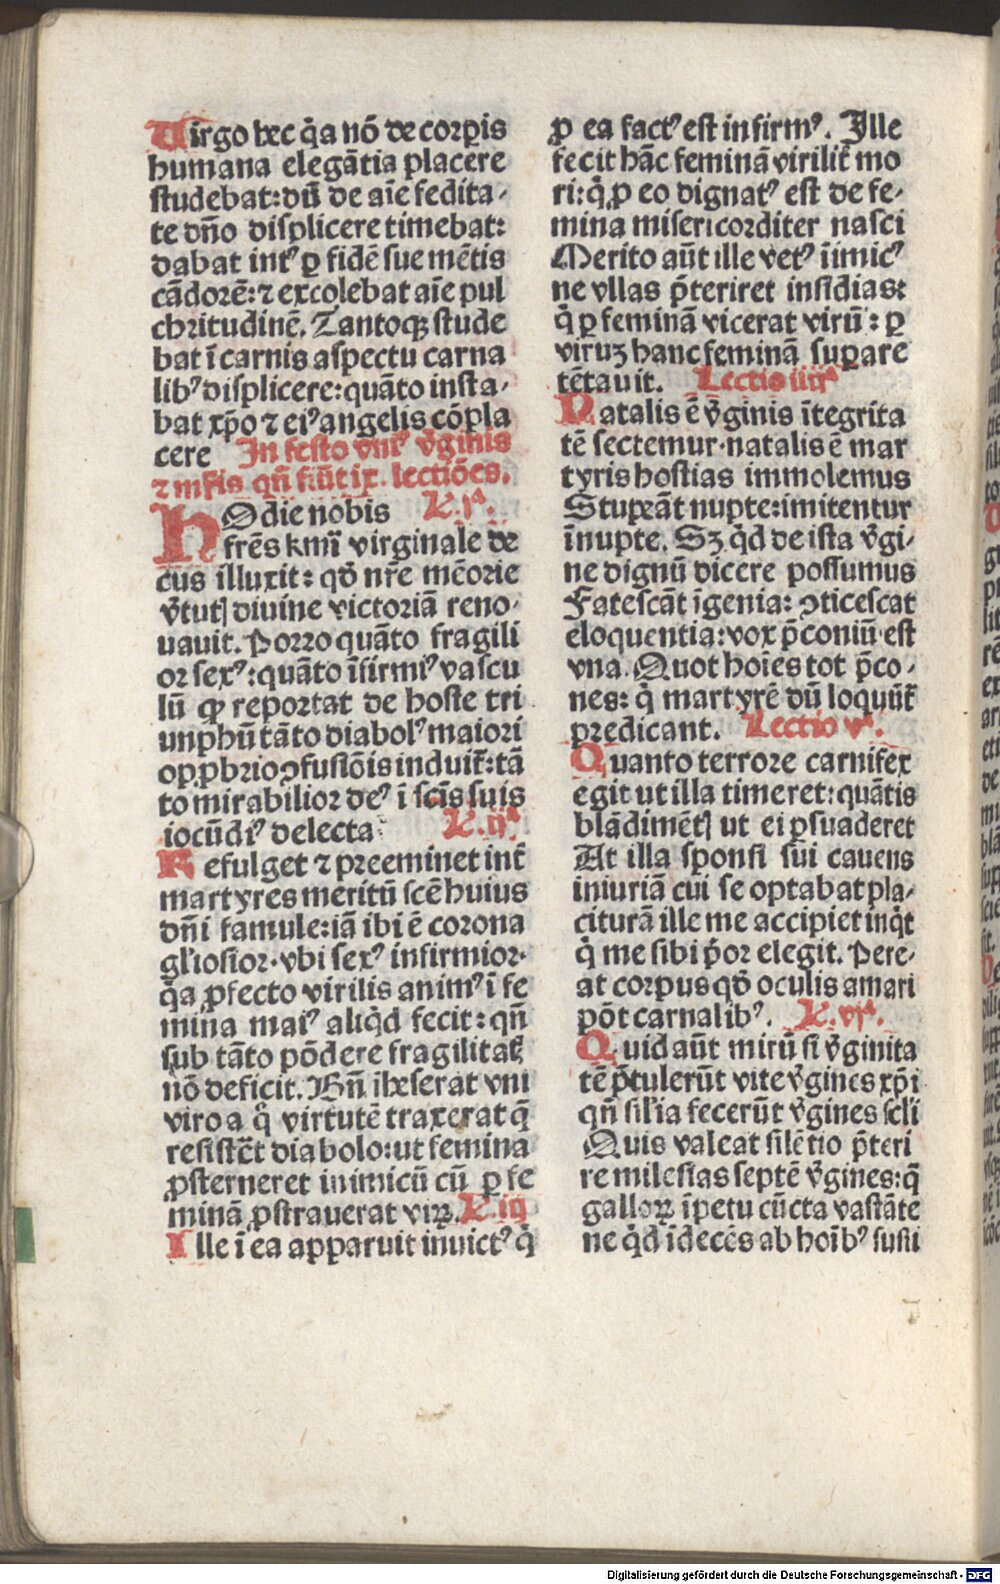 Uirgo hec q̇a nō de corꝑis
humana elegātia placere
studebat: dū de aīe fedita-
te dn̄o displicere timebat:
dabat intꝰ ꝑ fidē sue mētis
cādorē: ⁊ excolebat aīe pul
chritudinē. Tantoqꝫ stude
bat ī carnis aspectu carna
libꝰ displicere: quāto insta-
bat xp̄o ⁊ eiꝰ angelis cōpla
cere In festo vniꝰ v̄ginis
⁊ mr̄is qn̄ fiūt ix. lectiōes.
HOdie nobis L. jᵃ.
frēs kmī virginale de
cus illuxit: qđ nr̄e mēorie
v̄tutꝭ diuine victoriā reno-
uauit. Porro quāto fragili
or sexꝰ: quāto īfirmiꝰ vascu
lū ꝙ reportat de hoste tri
unphū tāto diabolꝰ maiori
opꝓbrio ꝯfusiōis induit̄: tā
to mirabilior deꝰ ī scīs suis
iocūdiꝰ delecta: L. ijᵃ
Refulget ⁊ preeminet int̄
martyres meritū scē huius
dn̄i famule: iā ibi ē corona
gl'iosior. vbi sexꝰ infirmior.
q̇a ꝓfecto virilis animꝰ ī fe
mina maiꝰ aliq̇d fecit: qn̄
sub tāto pōdere fragilitatꝭ
nō deficit. Bn̄ īheserat vni
viro a q̊ virtutē traxerat q̄
resistēt diabolo: ut femina
ꝓsterneret inimicū cū ꝑ fe
minā ꝓstrauerat virꝝ. L. iij
Ille ī ea apparuit inuictꝰ q̇
ꝓ ea factꝰ est infirmꝰ. Ille
fecit hāc feminā virilit̄ mo
ri: q̇ ꝓ eo dignatꝰ est de fe-
mina misericorditer nasci
Merito aūt ille vetꝰ īimicꝰ
ne vllas p̄teriret insidias:
q̇ ꝑ feminā vicerat virū: ꝑ
viruꝫ hanc feminā suꝑare
tētauit. Lectio iiijᵃ
Natalis ē v̄ginis ītegrita
tē sectemur. natalis ē mar
tyris hostias immolemus
Stupeāt nupte: imitentur
īnupte. Sꝫ q̇d de ista v̄gi-
ne dignū dicere possumus
Fatescāt īgenia: ꝯticescat
eloquentia: vox p̄coniū est
vna. Quot hoīes tot p̄co-
nes: q̇ martyrē dū loquūt̄
predicant. Lectio vᵃ.
Quanto terrore carnifex
egit ut illa timeret: quātis
blādimētꝭ ut ei ꝑsuaderet
At illa sponsi sui cauens
iniuriā cui se optabat pla-
citurā ille me accipiet inq̇t
q̇ me sibi p̓or elegit. Pere-
at corpus qđ oculis amari
pōt carnalibꝰ. L. vjᵃ.
Quid aūt mirū si v̄ginita
tē p̄tulerūt vite v̄gines xp̄i
qn̄ sil'ia fecerūt v̄gines scl'i
Quis valeat silētio p̄teri
re milesias septē v̄gines: q̄
galloꝝ īpetu cūcta vastāte
ne q̇d īdecēs ab hoībꝰ susti
Digitalisierung gefördert durch die Deutsche Forschungsgemeinschaft - DFG